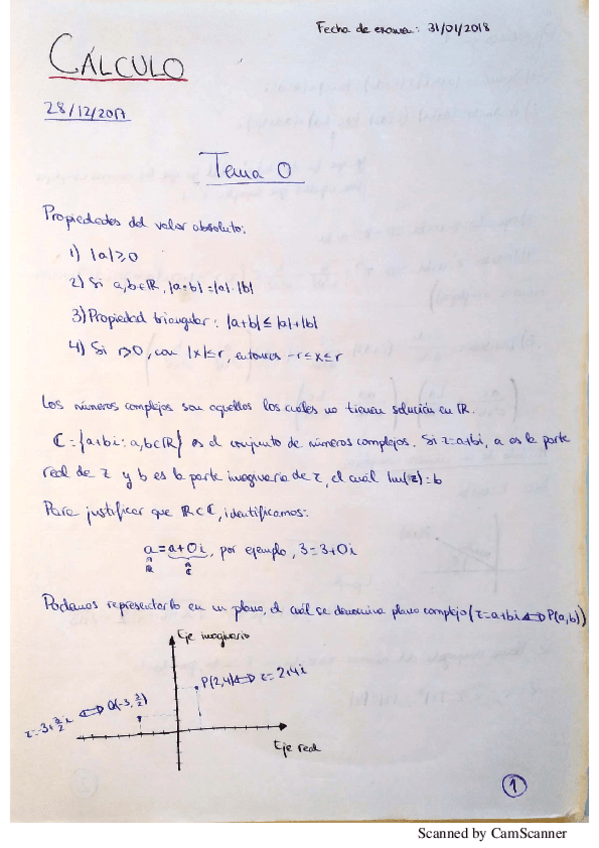 Fecha de examen: 31/01/2018
CÁLCULO
28/12/2017
Tema 0
Propiedades del valor absoluto:
1) |a|≥0
2) Si a,b∈ℝ, |a·b|=|a|·|b|
3) Propiedad triangular: |a+b|≤|a|+|b|
4) Si r>0, con |x|≤r, entonces -r≤x≤r
Los números complejos son aquellos los cuales no tienen solución en ℝ.
ℂ={a+bi: a,b∈ℝ} es el conjunto de números complejos. Si z=a+bi, a es la parte
real de z y b es la parte imaginaria de z, el cuál Im(z)=b
Para justificar que ℝ⊂ℂ, identificamos:
a=a+0i, por ejemplo, 3=3+0i
ℝ ℂ
Podemos representarlo en un plano, el cuál se denomina plano complejo (z=a+bi⇔P(a,b))
Eje imaginario
P(2,4)⇔z=2+4i
z=-3+3/2 i ⇔ Q(-3,3/2)
Eje real
1
Scanned by CamScanner